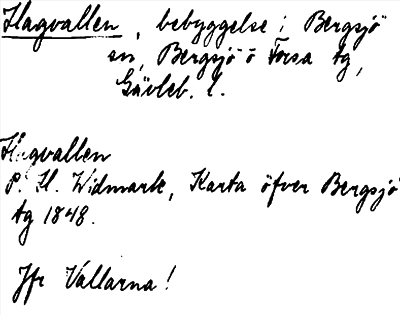 Hagvallen, bebyggelse i Bergsjö
sn, Bergsjö o Forsa tg,
Gävleb. l.
Hagvallen
P. H. Widmark, Karta öfver Bergsjö
tg 1848.
Jfr Vallarna!